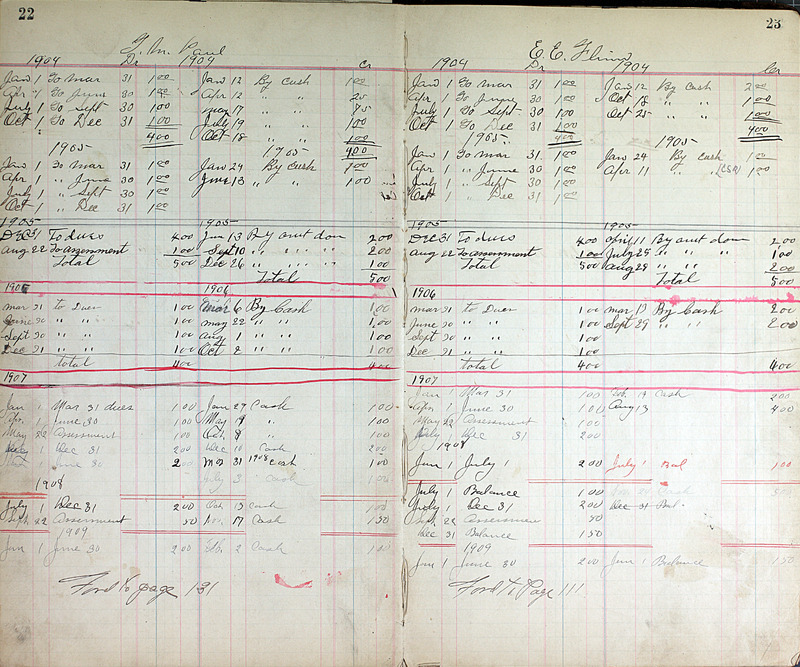 22
G. M. Paul
1904 Dr 1904 Cr
Jan 1 To Mar 31 1.00 Jan 12 By Cash 1.00
Apr 1 To June 30 1.00 Apr 12 " " 25
July 1 To Sept 30 1.00 May 17 " " 75
Oct 1 To Dec 31 1.00 July 19 " " 1.00
4.00 Oct 18 " " 1.00
1905 1905 4.00
Jan 1 To Mar 31 1.00 Jan 24 By Cash
Apr " June 30 1.00 June 13 " " 1.00
July 1 " Sept 30 1.00
Oct 1 " Dec 31 1.00
1905 1905
Dec 31 To dues 4 00 Jun 13 By amt dom 2.00
Aug 22 To assessment 1 00 Sept 10 " " " 2.00
Total 5 00 Dec 26 " " " 1.00
Total 5 00
1906 1906
Mar 31 to Dues 1 00 Mar 6 By Cash 1,00
June 30 " " 1 00 May 22 " " 1,00
Sept 30 " " 1 00 Aug 1 " " 1 00
Dec 31 " " 1 00 Oct 2 " " 1 00
Total 4 00 4 00
1907
Jan 1 Mar 31 dues 1 00 Jan 29 Cash 1 00
Apr. 1 June 30 1 00 May 9 " 1 00
May 22 Assessment 1 00 Oct 8 " 1 00
July 1 Dec 31 2 00 Dec 10 Cash 2 00
June 30 2 00 Mar 31 1908 Cash 1 00
1908 July 3 Cash 1 00
July 1 Dec 31 2 00 Oct 13 Cash 1 00
Sept 22 Assessment 50 Nov. 17 Cash 1 50
1909
Jan 1 June 30 2 00 Feb. 2 Cash
Ford to page 131
23
E. E. Fling
1904 Dr 1904 Cr
Jan 1 To Mar 31 1.00 Jan 12 By Cash 2.00
Apr 1 To June 30 1.00 Oct 18 " " 1.00
July 1 To Sept 30 1.00 Oct 25 " " 1.00
Oct 1 To Dec 31 1.00 4.00
4.00
1905 1905
Jan 1 To Mar 31. 1.00 Jan 24 By Cash 1.00
Apr 1 " June 30 1.00 Apr 11 " " 1.00
July 1 " Sept 30 1.00
Oct 1 " Dec 31 1.00
1905 1905
Dec 31 To dues 4 00 April 11 By amt dom 2 00
Aug 22 To assessment 1 00 July 25 " " " 1 00
Total 5 00 Aug 29 " " " 2 00
Total 5 00
1906
Mar 31 to Dues 1 00 Mar 13 By Cash 2 00
June 30 " " 1 00 Sept 29 " " 2 00
Sept 30 " " 1 00
Dec 31 " " 1 00
Total 4 00 4 00
1907
Jan 1 Mar 31 1 00 Feb. 19 Cash 2 00
Apr. 1 June 30 1 00 Aug 13 4 00
May 22 Assessment 1 00
July 1 Dec 31 2 00
1908
Jan 1 July 1 2 00 July 1 Bal 1 00
July 1 Balance 1 00 Cash
July 1 Dec 31 2 00 Dec 31 Bal.
Sept 22 Assessment 50
Dec 31 Balance 1 50
1909
Jan 1 June 30 2 00 Jun 1 Balance 1 50
Ford to Page 111